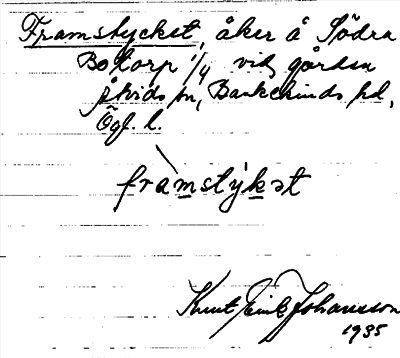 Framstycket, åker å Södra
Botorp 1/4 vid gården
Åtvids sn, Bankekinds hd,
Ögl. l.
framstykət
Knut Erik Johansson
1935